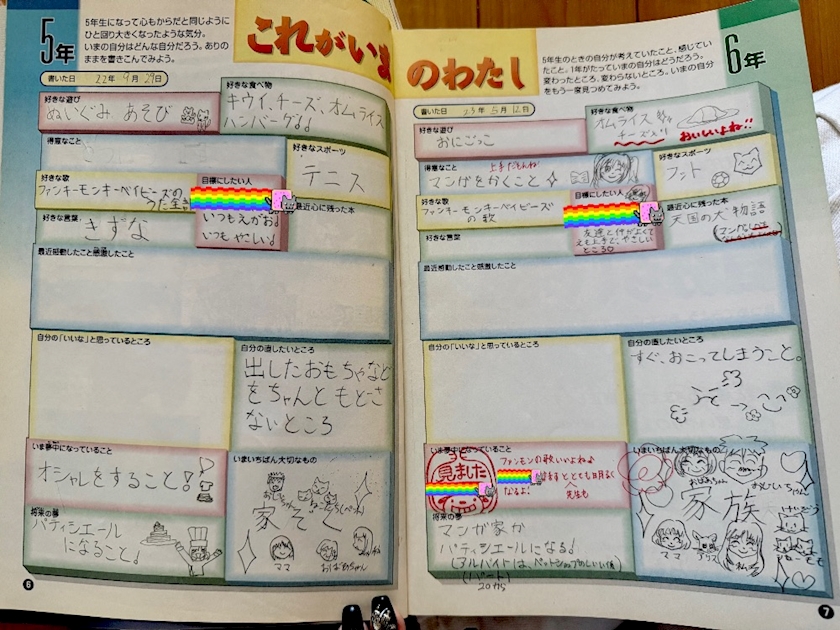 5年
5年生になって心もからだと同じように
ひと回り大きくなったような気分。
いまの自分はどんな自分だろう。ありの
ままを書きこんでみよう。
これがいまのわたし
書いた日 22年 9月 29日
好きな遊び
ぬいぐるみ あそび
好きな食べ物
キウイ、チーズ、オムライス
ハンバーグ
得意なこと
好きなスポーツ
テニス
好きな歌
ファンキーモンキーベイビーズの
うた
目標にしたい人
いつもえがお!
いつも やさしい!
好きな言葉
きずな
最近心に残った本
最近感動したこと感激したこと
自分の「いいな」と思っているところ
自分の直したいところ
出したおもちゃなど
をちゃんと もどさ
ないところ
いま夢中になっていること
オシャレをすること!
いまいちばん大切なもの
家ぞく
ママ
おばあちゃん
将来の夢
パティシエール
になること!
6
6年
5年生のときの自分が考えていたこと、感じてい
たこと。1年がたっていまの自分はどうだろう。
変わったところ、変わらないところ。いまの自分
をもう一度見つめてみよう。
書いた日 23年 5月 12日
好きな遊び
おにごっこ
好きな食べ物
オムライス
チーズ入り
おいしいよね!!
得意なこと
上手だもんね
マンガをかくこと
好きなスポーツ
フット
好きな歌
ファンキーモンキーベイビーズ
の歌
目標にしたい人
友達と仲がよくて
えも上手で、やさしい
ところ
好きな言葉
最近心に残った本
天国の犬物語
(マンガ)
最近感動したこと感激したこと
自分の「いいな」と思っているところ
自分の直したいところ
すぐ、おこってしまうこと。
いま夢中になっていること
見ました
ファンモンの歌いいよね♪
とても明るく
なるよ!
先生も
いまいちばん大切なもの
家族
おばあちゃん
おじいちゃん
ママ
アリス
私
将来の夢
マンガ家か
パティシエールになる!
(アルバイトは、ペットショップめいしい係)
(パート)
20才
7